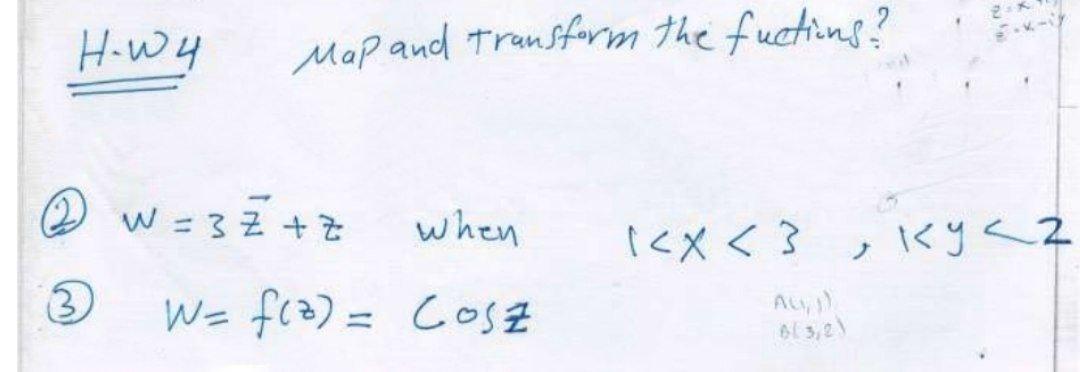 H.W4 Map and Transform the fuctions?
② W = 3z̄ + z when 1<x<3 , 1<y<2
③ W = f(z) = Cosz
A(1,1)
B(3,2)